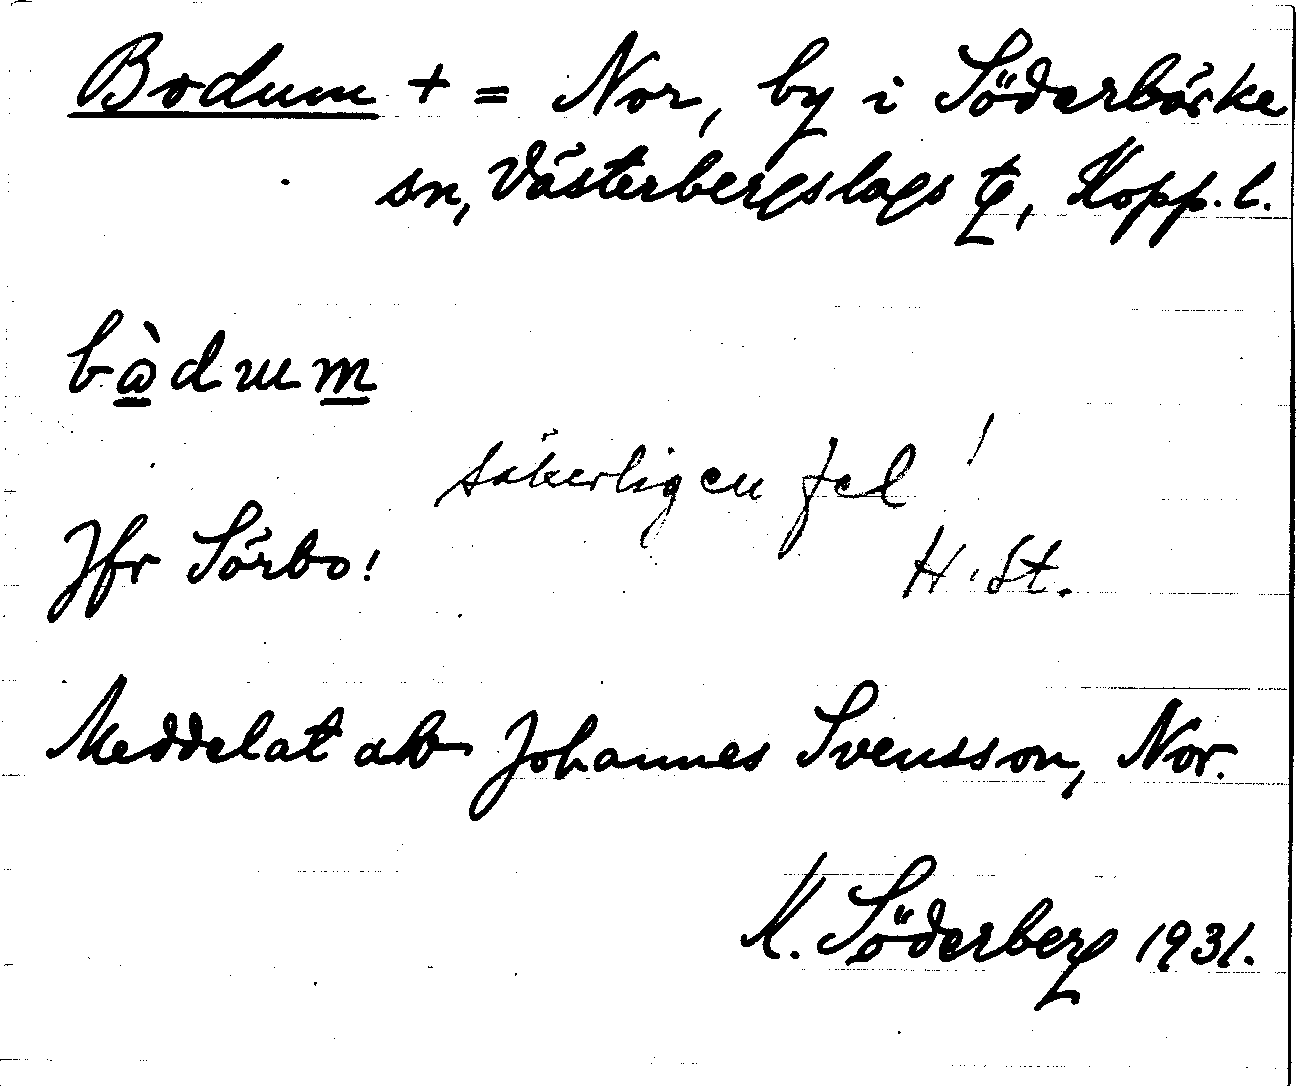 Bodum + = Nor, by i Söderbärke
sn, Västerbergslags tg, Kopp. l.
bàdum
säkerligen fel!
Jfr Sörbo!
H. St.
Meddelat av Johannes Svensson, Nor.
K. Söderberg 1931.